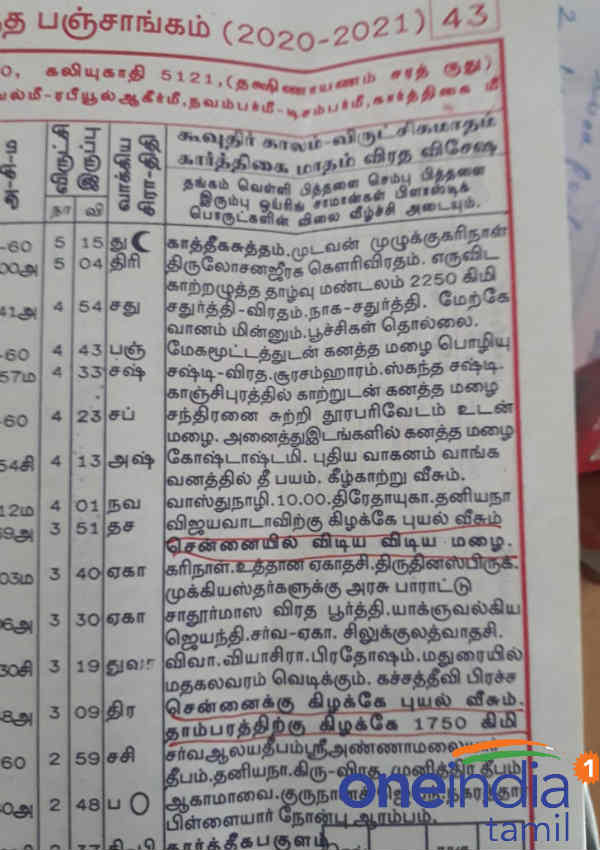 த பஞ்சாங்கம் (2020-2021) 43
0, கலியுகாதி 5121,(தக்ஷிணாயணம் சரத் ருது)
ல்மீ-ரபியூல்ஆகிர்மீ,நவம்பர்மீ-டிசம்பர்மீ,கார்த்திகை மீ
அ-சி-ம
விருட்சி இருப்பு
நா வி
வாக்கிய சிரா-திதி
கூவுதிர் காலம்-விருட்சிகமாதம்
கார்த்திகை மாதம் விரத விசேஷ
தங்கம் வெள்ளி பித்தளை செம்பு பித்தளை
இரும்பு ஒயரிங் சாமான்கள் பிளாஸ்டிக்
பொருட்களின் விலை வீழ்ச்சி அடையும்.
-60 5 15 து காத்தீகசுத்தம்.முடவன் முழுக்குகரிநாள்
00அ 5 04 திரி திருலோசனஜீரக கௌரிவிரதம். எருவிட
காற்றழுத்த தாழ்வு மண்டலம் 2250 கிமி
41அ 4 54 சது சதுர்த்தி-விரதம்.நாக-சதுர்த்தி. மேற்கே
வானம் மின்னும்.பூச்சிகள் தொல்லை.
-60 4 43 பஞ் மேகமூட்டத்துடன் கனத்த மழை பொழியு
57ம 4 33 சஷ் சஷ்டி-விரத.சூரசம்ஹாரம்.ஸ்கந்த சஷ்டி.
காஞ்சிபுரத்தில் காற்றுடன் கனத்த மழை
-60 4 23 சப் சந்திரனை சுற்றி தூரபரிவேடம் உடன்
மழை. அனைத்துஇடங்களில் கனத்த மழை
54சி 4 13 அஷ் கோஷ்டாஷ்டமி. புதிய வாகனம் வாங்க
வனத்தில் தீ பயம். கீழ்காற்று வீசும்.
12ம 4 01 நவ வாஸ்துநாழி.10.00.திரேதாயுகா.தனியநா
59அ 3 51 தச விஜயவாடாவிற்கு கிழக்கே புயல் வீசும்
சென்னையில் விடிய விடிய மழை.
03ம 3 40 ஏகா கரிநாள்.உத்தான ஏகாதசி.திருதினஸ்பிருக்.
முக்கியஸ்தர்களுக்கு அரசு பாராட்டு
06அ 3 30 ஏகா சாதூர்மாஸ விரத பூர்த்தி.யாக்ஞவல்கிய
ஜெயந்தி.சர்வ-ஏகா. சிலுக்குலத்வாதசி.
30சி 3 19 துவா விவா.வியாசிரா.பிரதோஷம்.மதுரையில்
மதகலவரம் வெடிக்கும். கச்சத்தீவி பிரச்ச
8அ 3 09 திர சென்னைக்கு கிழக்கே புயல் வீசும்.
தாம்பரத்திற்கு கிழக்கே 1750 கிமி
60 2 59 சசி சர்வ ஆலயதீபம்ஸ்ரீஅண்ணாமலையார்
தீபம்.தனியநா.கிரு-விரத. முனித்திர தீபம்
0அ 2 48 ப ஆகாமாவை.குருநானக்
பிள்ளையார் நோன்பு ஆரம்பம்.
கார்த்தீகபகுளம்
oneindia
tamil
1